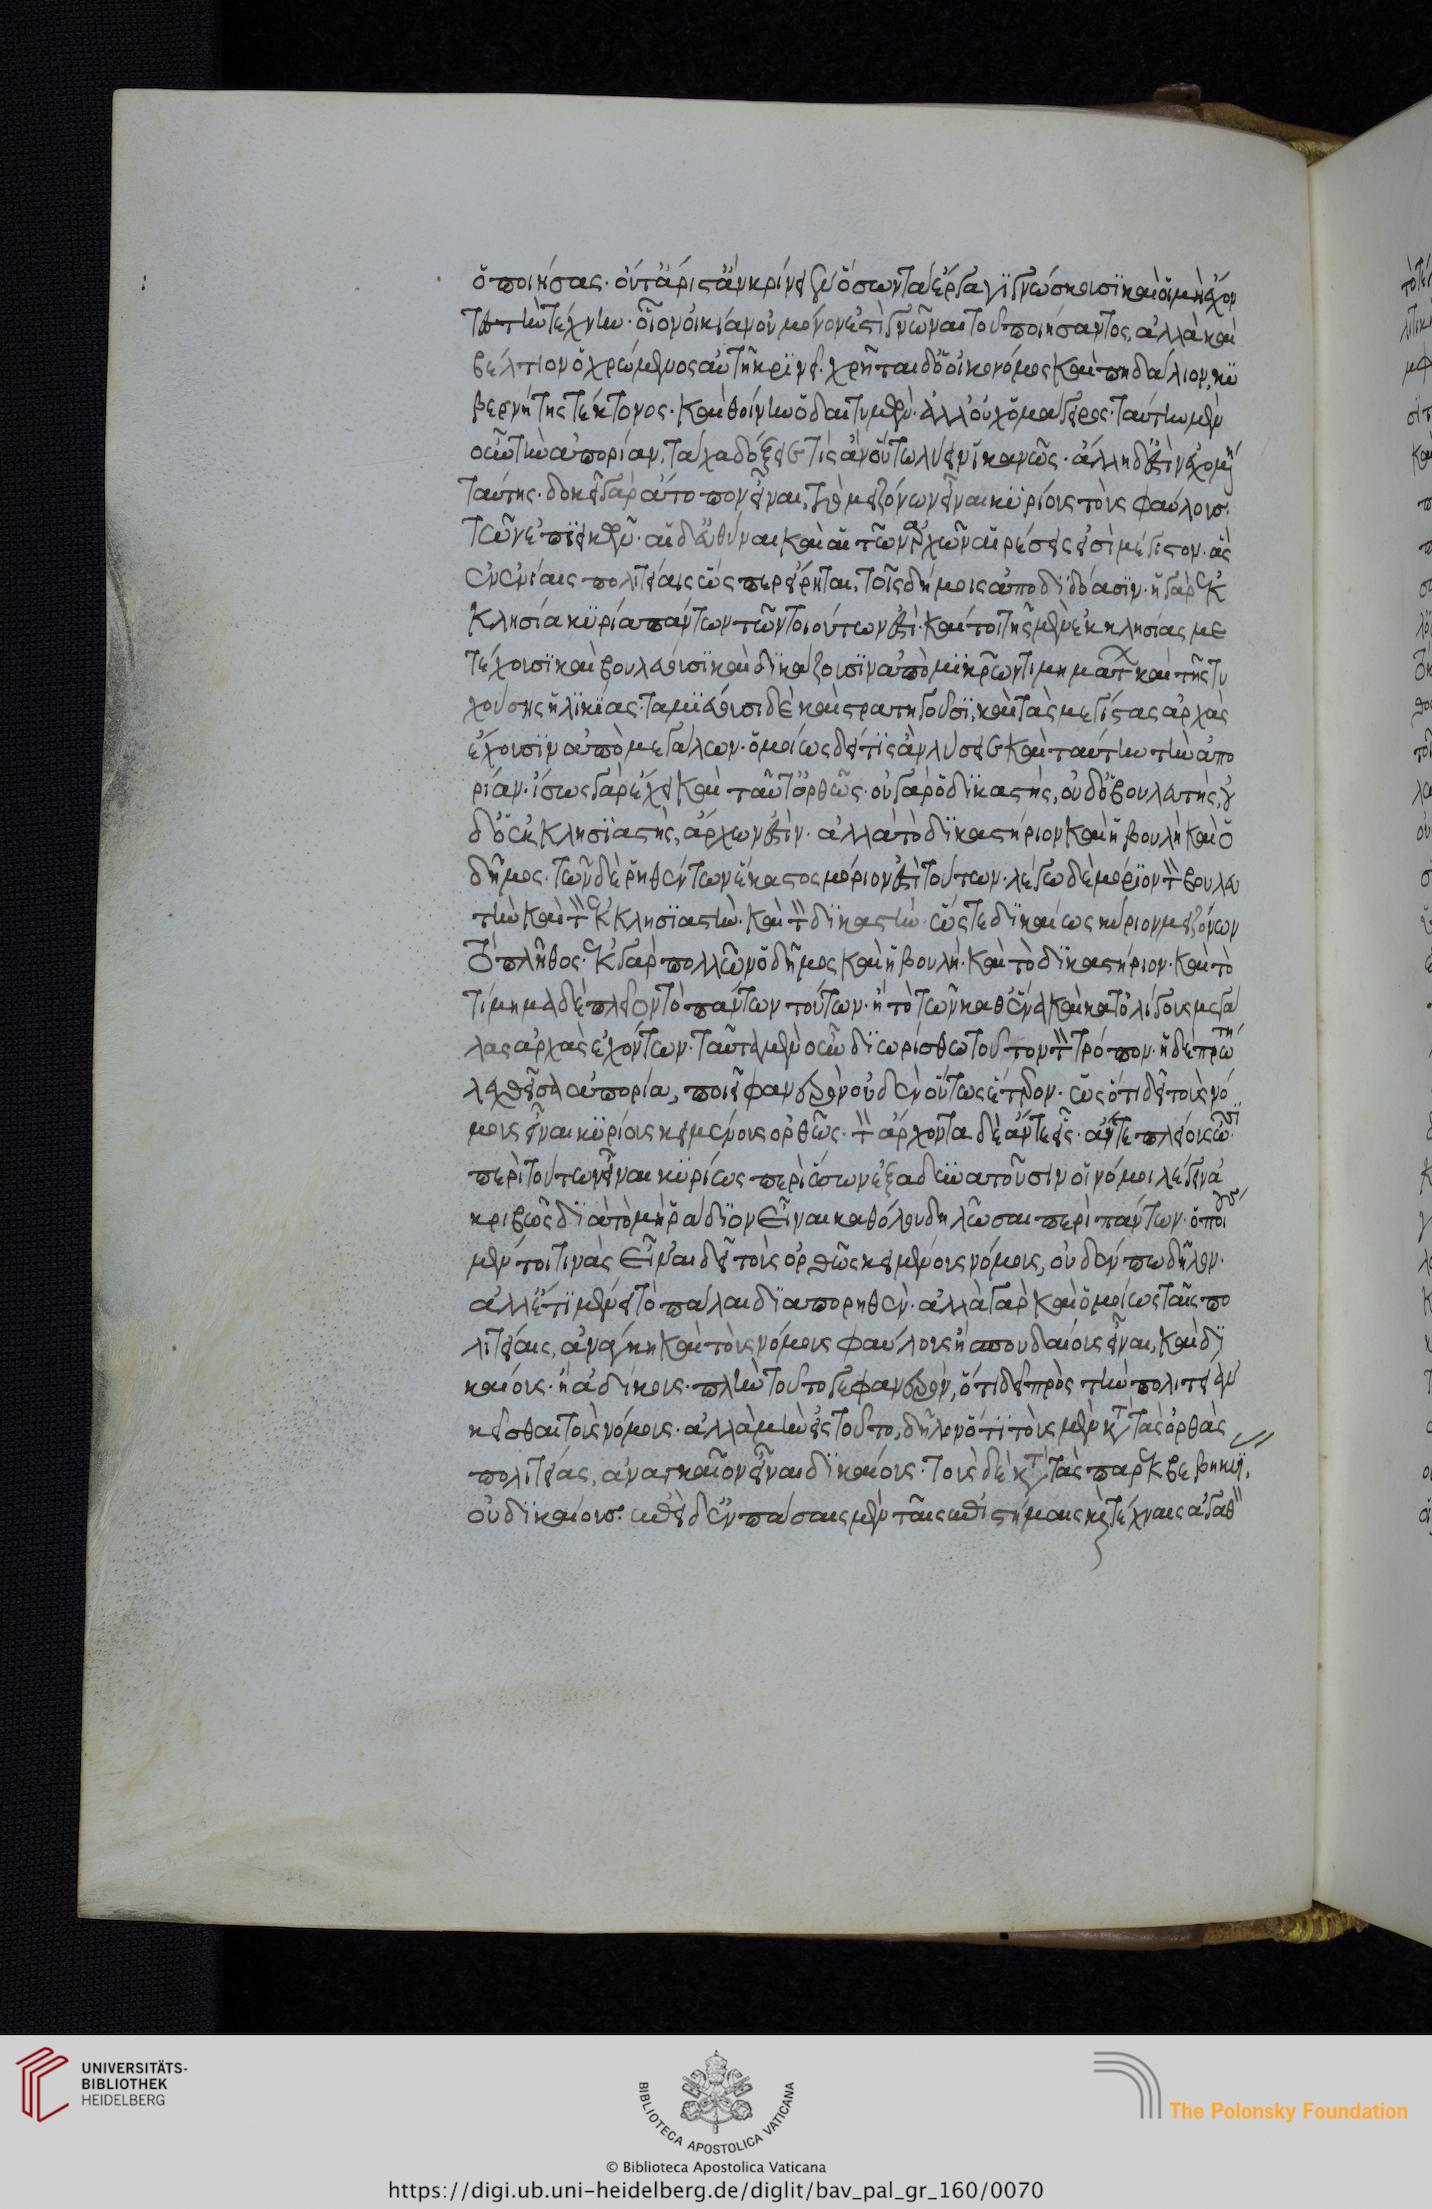 ὁ ποιήσας· οὔτ' ἄριστ' ἂν κρίνειεν ὅσων τἆργα γιγνώσκουσι καὶ οἱ μὴ ἔχον
τες τὴν τέχνην· οἷον οἰκίαν οὐ μόνον ἐστὶ γνῶναι τοῦ ποιήσαντος, ἀλλὰ καὶ
βέλτιον ὁ χρώμενος αὐτῇ κρινεῖ. χρῆται δ' ὁ οἰκονόμος· καὶ πηδάλιον, κυ
βερνήτης τέκτονος· καὶ θοίνην ὁ δαιτυμών· ἀλλ' οὐχ ὁ μάγειρος· ταύτην μὲν
οὖν τὴν ἀπορίαν, τάχα δόξειέ τις ἂν οὕτω λύειν ἱκανῶς· ἄλλη δ' ἐστὶν ἐχομένη
ταύτης· δοκεῖ γὰρ ἄτοπον εἶναι, τὸ μειζόνων εἶναι κυρίους τοὺς φαύλους
τῶν ἐπιεικῶν· αἱ δ' εὔθυναι καὶ αἱ τῶν ἀρχῶν αἱρέσεις εἰσὶ μέγιστον· ἃς
ἐν ἐνίαις πολιτείαις ὥσπερ εἴρηται, τοῖς δήμοις ἀποδιδόασιν· ἡ γὰρ ἐκ
κλησία κυρία πάντων τῶν τοιούτων ἐστί· καίτοι τῆς μὲν ἐκκλησίας με
τέχουσι καὶ βουλεύουσι καὶ δικάζουσιν ἀπὸ μικρῶν τιμημάτων καὶ τῆς τυ
χούσης ἡλικίας· ταμιεύουσι δὲ καὶ στρατηγοῦσι, καὶ τὰς μεγίστας ἀρχὰς
ἔχουσιν ἀπὸ μεγάλων· ὁμοίως δέ τις ἂν λύσειε καὶ ταύτην τὴν ἀπο
ρίαν· ἴσως γὰρ ἔχει καὶ ταῦτ' ὀρθῶς· οὐ γὰρ ὁ δικαστής, οὐδ' ὁ βουλευτής, οὐ
δ' ὁ ἐκκλησιαστής, ἄρχων ἐστίν· ἀλλὰ τὸ δικαστήριον καὶ ἡ βουλὴ καὶ ὁ
δῆμος· τῶν δὲ ῥηθέντων ἕκαστος μόριον ἐστὶ τούτων· λέγω δὲ μόριον τὸν βουλευ
τὴν καὶ τὸν ἐκκλησιαστὴν· καὶ τὸν δικαστήν· ὥστε δικαίως κύριον μειζόνων
τὸ πλῆθος· ἐκ γὰρ πολλῶν ὁ δῆμος καὶ ἡ βουλή· καὶ τὸ δικαστήριον· καὶ τὸ
τίμημα δὲ πλεῖον τὸ πάντων τούτων· ἢ τὸ τῶν καθ' ἕνα καὶ κατ' ὀλίγους μεγά
λας ἀρχὰς ἐχόντων· ταῦτα μὲν οὖν διωρίσθω τοῦτον τὸν τρόπον· ἡ δὲ πρώτη
λεχθεῖσα ἀπορία, ποιεῖ φανερὸν οὐδὲν οὕτως ἕτερον· ὡς ὅτι δεῖ τοὺς νό
μους εἶναι κυρίους κειμένους ὀρθῶς· τὸν ἄρχοντα δὲ ἄν τε εἷς· ἄν τε πλείους ὦσι
περὶ τούτων εἶναι κυρίους περὶ ὅσων ἐξαδυνατοῦσιν οἱ νόμοι λέγειν ἀ
κριβῶς διὰ τὸ μὴ ῥᾴδιον εἶναι καθόλου δηλῶσαι περὶ πάντων· ὁποίους
μέντοι τινὰς εἶναι δεῖ τοὺς ὀρθῶς κειμένους νόμους, οὐδέν πω δῆλον·
ἀλλ' ἔτι μένει τὸ πάλαι διαπορηθέν· ἀλλὰ γὰρ καὶ ὁμοίως ταῖς πο
λιτείαις, ἀνάγκη καὶ τοὺς νόμους φαύλους ἢ σπουδαίους εἶναι, καὶ δι
καίους· ἢ ἀδίκους· πλὴν τοῦτό γε φανερὸν, ὅτι δεῖ πρὸς τὴν πολιτείαν
κεῖσθαι τοὺς νόμους· ἀλλὰ μὴν εἰ τοῦτο, δῆλον ὅτι τοὺς μὲν κατὰ τὰς ὀρθὰς
πολιτείας, ἀναγκαῖον εἶναι δικαίους· τοὺς δὲ κατὰ τὰς παρεκβεβηκυίας,
οὐ δικαίους. ἐπεὶ δ' ἐν πάσαις μὲν ταῖς ἐπιστήμαις καὶ τέχναις ἀγαθὸν
UNIVERSITÄTS-
BIBLIOTHEK
HEIDELBERG
BIBLIOTECA APOSTOLICA VATICANA
The Polonsky Foundation
© Biblioteca Apostolica Vaticana
https://digi.ub.uni-heidelberg.de/diglit/bav_pal_gr_160/0070